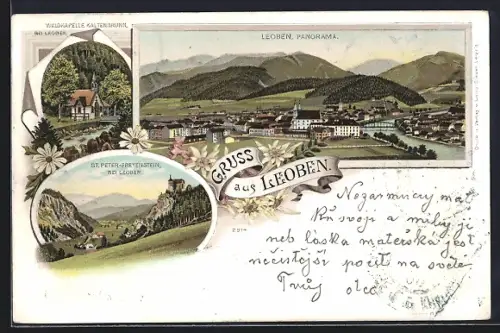 WALDKAPELLE KALTENBRUNN,
BEI LEOBEN.
LEOBEN, PANORAMA.
ST. PETER-FREIENSTEIN,
BEI LEOBEN.
GRUSS aus LEOBEN.
mat
svojí a milej
neb láska mateřská jest
nečistější pocit na světě
Tvůj otec